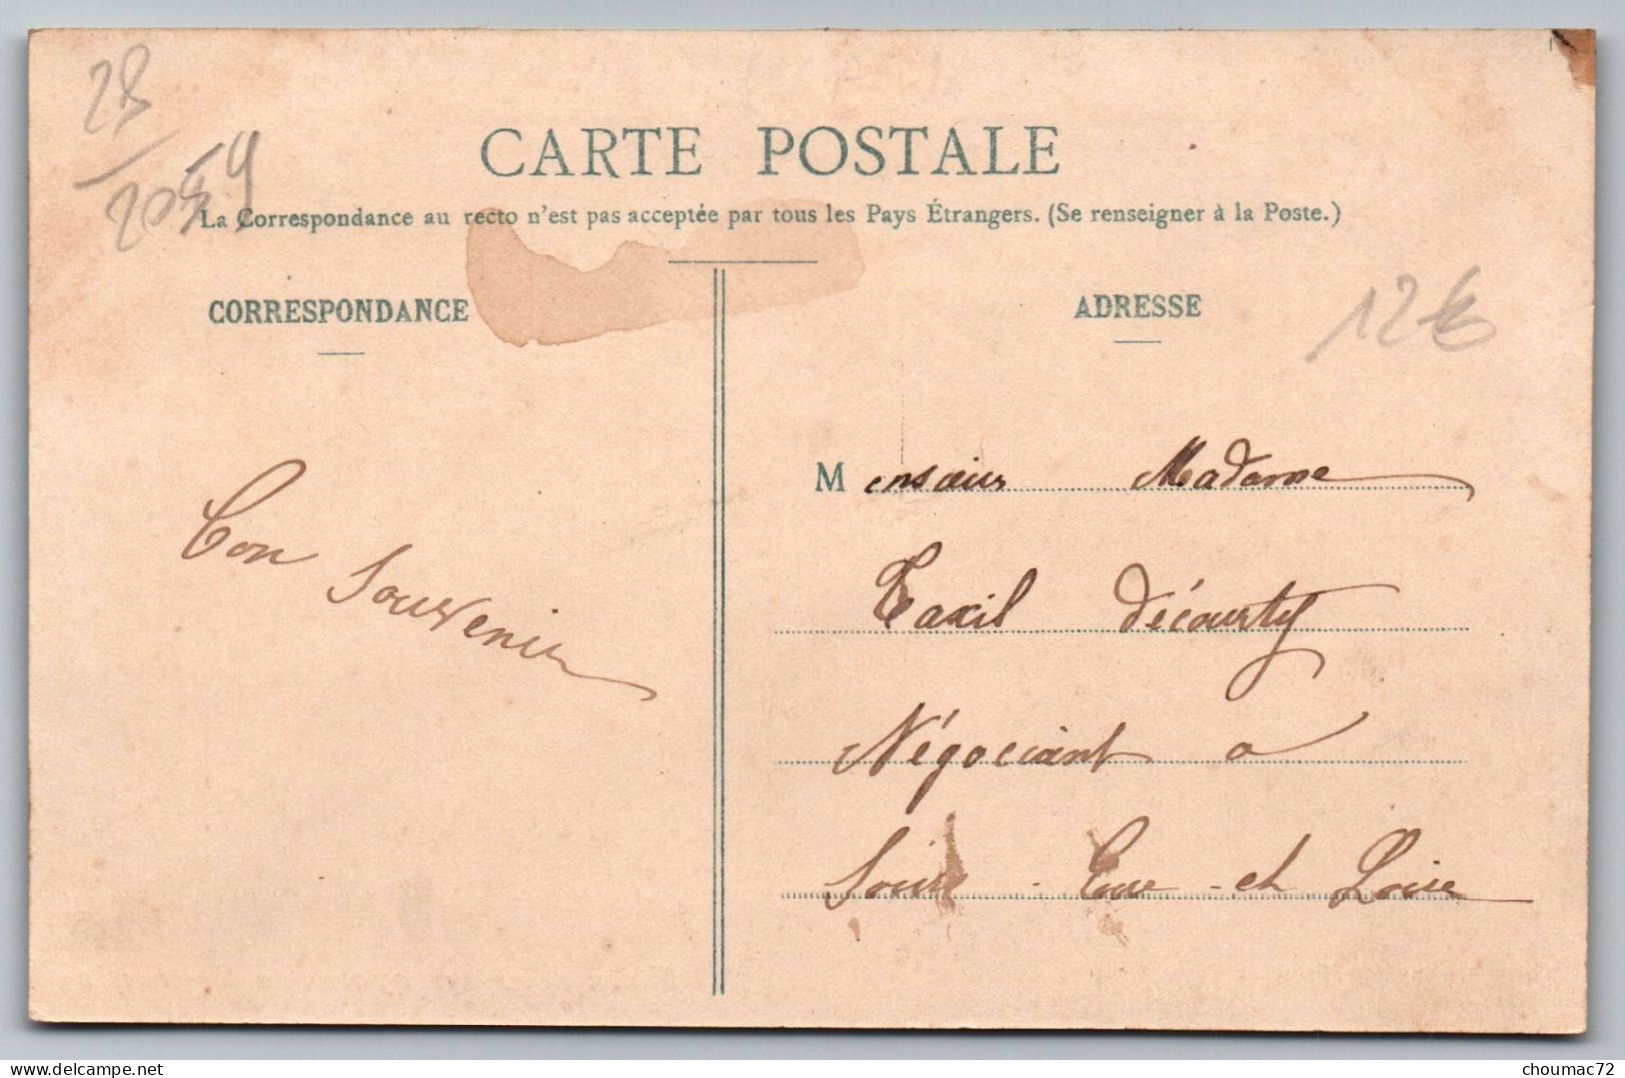 28
CARTE POSTALE
La Correspondance au recto n'est pas acceptée par tous les Pays Étrangers. (Se renseigner à la Poste.)
CORRESPONDANCE
ADRESSE
12€
Monsieur Madame
Bon
Souvenir
Taxil Décourty
Négociant a
Eure-et Loire
delcampe.net
choumac72